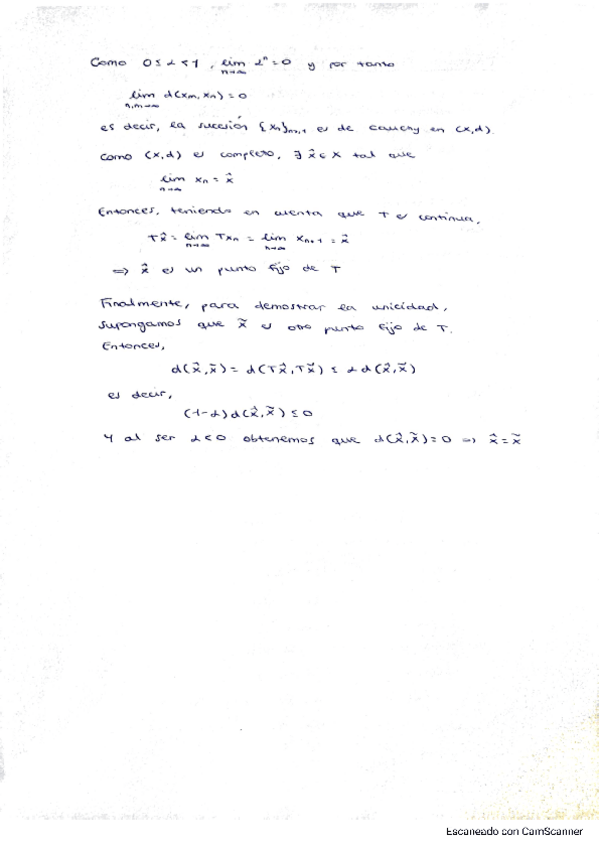 Como 0 ≤ α < 1, lim αⁿ = 0 y por tanto
n→∞
lim d(xm, xn) = 0
n,m→∞
es decir, la sucesión {xn}n≥1 es de cauchy en (X,d).
Como (X,d) es completo, ∃ x̂ ∈ X tal que
lim xn = x̂
n→∞
Entonces, teniendo en cuenta que T es continua,
Tx̂ = lim Txn = lim xn+1 = x̂
n→∞ n→∞
=> x̂ es un punto fijo de T
Finalmente, para demostrar la unicidad,
supongamos que x̃ es otro punto fijo de T.
Entonces,
d(x̂, x̃) = d(Tx̂, Tx̃) ≤ α d(x̂, x̃)
es decir,
(1-α) d(x̂, x̃) ≤ 0
Y al ser α < 0 obtenemos que d(x̂, x̃) = 0 => x̂ = x̃
Escaneado con CamScanner